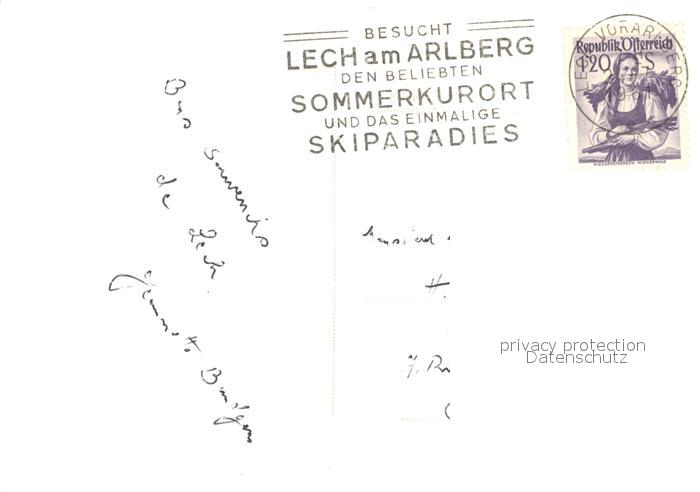 BESUCHT
LECH am ARLBERG
DEN BELIEBTEN
SOMMERKURORT
UND DAS EINMALIGE
SKIPARADIES
VORARLBERG
Republik Österreich
S
NIEDERÖSTERREICH WIENERWALD
Bons souvenirs
de Lech.
H.
privacy protection
Datenschutz